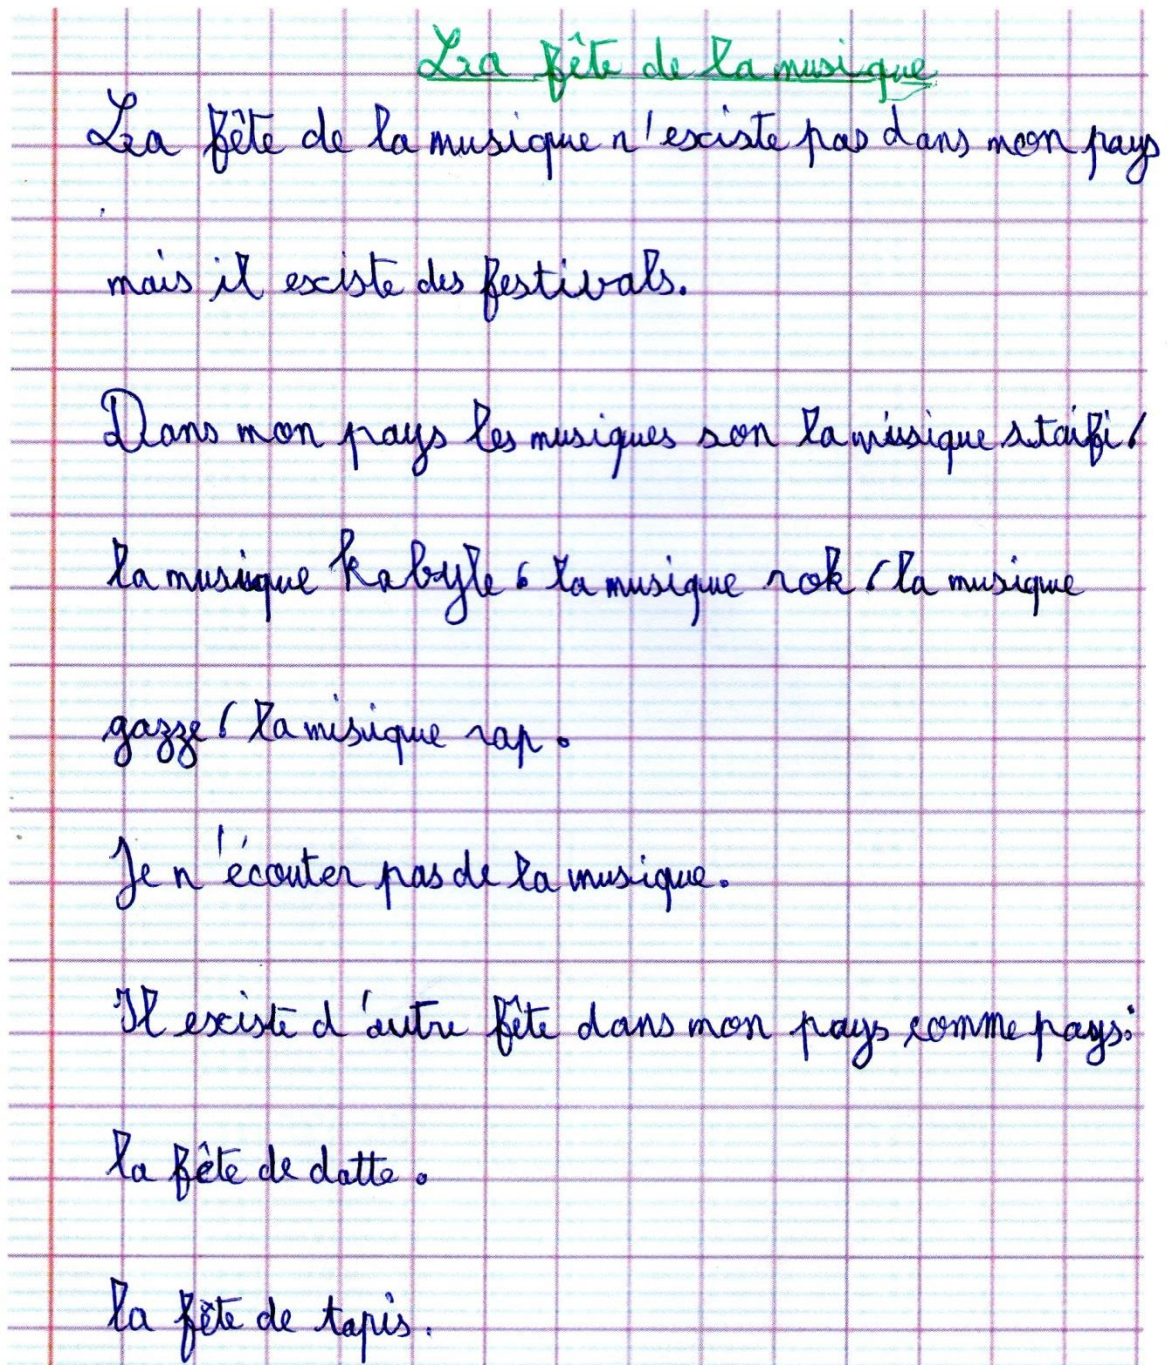 La fête de la musique
La fête de la musique n'existe pas dans mon pays
mais il existe des festivals.
Dans mon pays les musiques son la musique staifi,
la musique kabyle, la musique rok, la musique
gazze, la misique rap.
Je n'écouter pas de la musique.
Il existe d'autre fête dans mon pays comme pays:
la fête de datte.
la fête de tapis.